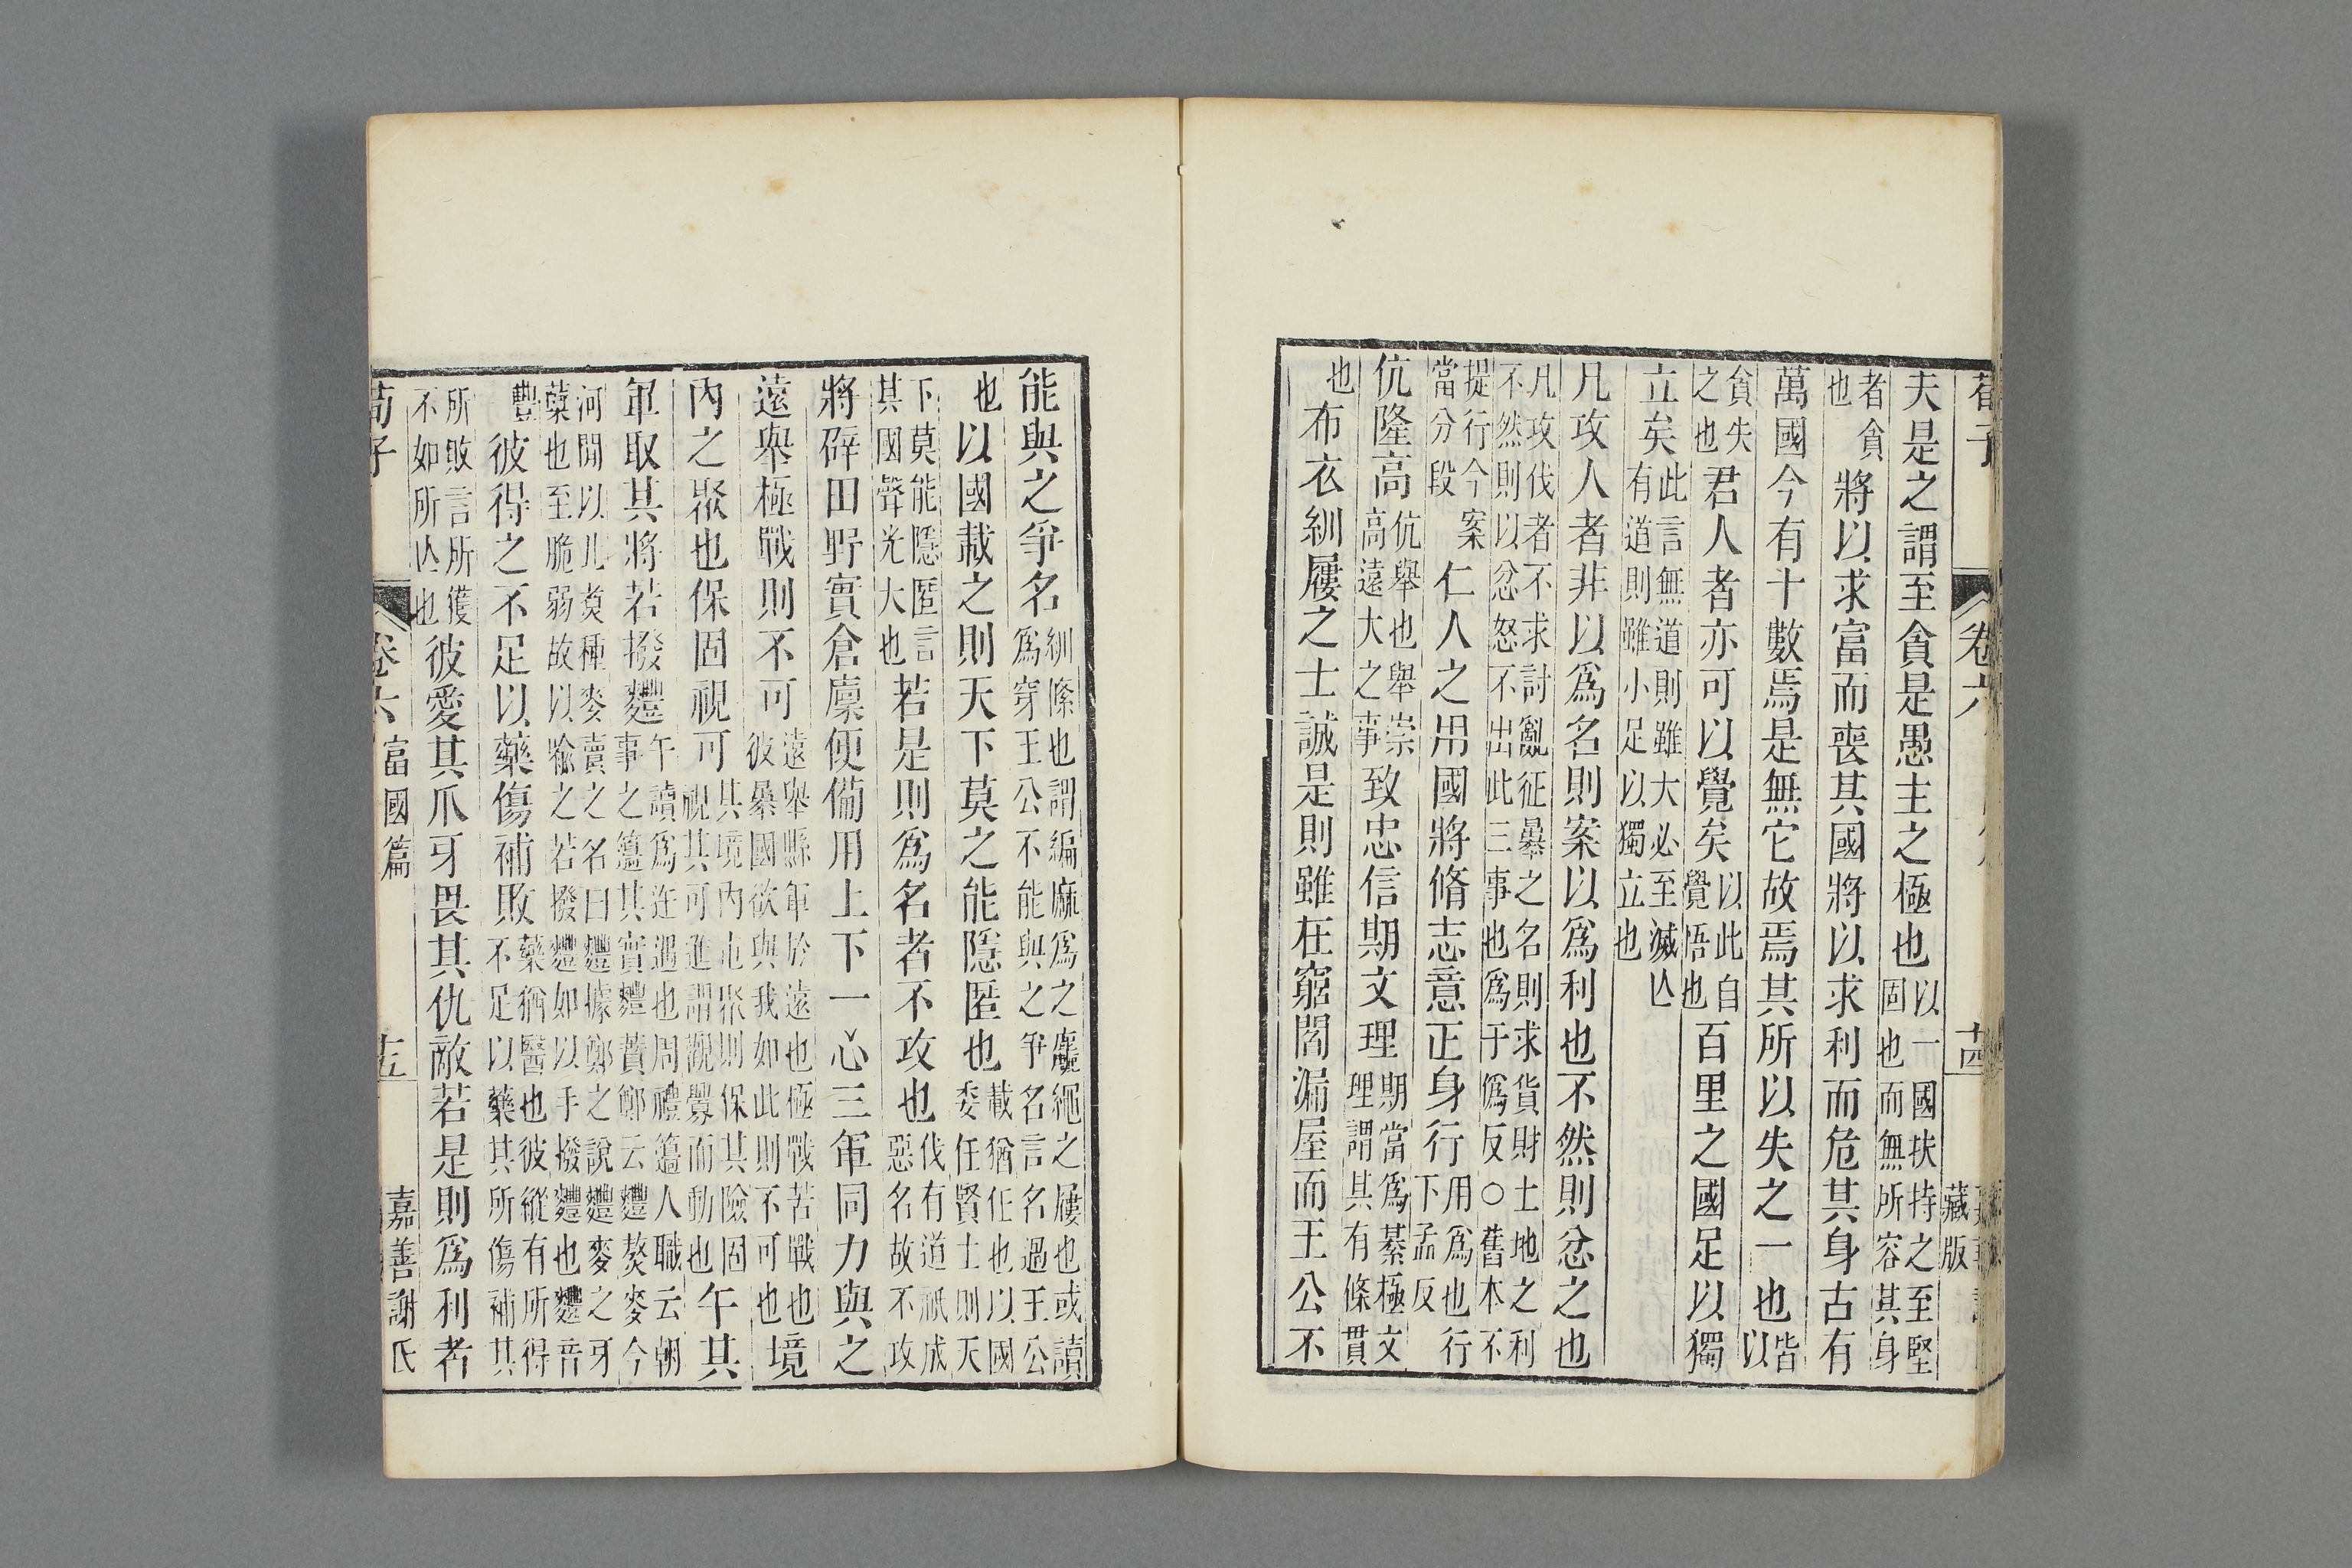 荀子 卷六 十四 藏版
夫是之謂至貪是愚主之極也以一國扶持之至堅固也而無所容其身
者貪也將以求富而喪其國將以求利而危其身古有
萬國今有十數焉是無它故焉其所以失之一也皆以
貪失之也君人者亦可以覺矣以此自覺悟也百里之國足以獨
立矣此言無道則雖大必至滅亾有道則雖小足以獨立也
凡攻人者非以爲名則案以爲利也不然則忿之也
凡攻伐者不求討亂征暴之名則求貨財土地之利不然則以忿怒不出此三事也爲于僞反○舊本不
提行今案當分段仁人之用國將脩志意正身行用爲也行下孟反
伉隆高伉舉也舉崇高遠大之事致忠信期文理期當爲綦極文理謂其有條貫
也布衣紃屨之士誠是則雖在窮閻漏屋而王公不
能與之爭名紃絛也謂編麻爲之麤繩之屨也或讀爲穿王公不能與之爭名言名過王公
也以國載之則天下莫之能隱匿也載猶任也以國委任賢士則天
下莫能隱匿言其國聲光大也若是則爲名者不攻也伐有道祇成惡名故不攻
將辟田野實倉廩便備用上下一心三軍同力與之
遠舉極戰則不可遠舉縣軍於遠也極戰苦戰也彼暴國欲與我如此則不可也境
內之聚也保固視可其境內屯聚則保其險固視其可進謂觀釁而動也午其
軍取其將若撥麷午讀爲迕遇也周禮籩人職云朝事之籩其實麷蕡鄭云麷熬麥今
河間以北煑種麥賣之名曰麷據鄭之說麷麥之牙蘖也至脆弱故以喻之若撥麷如以手撥麷也麷音
豐彼得之不足以藥傷補敗藥猶醫也彼縱有所得不足以藥其所傷補其
所敗言所獲不如所亾也彼愛其爪牙畏其仇敵若是則爲利者
荀子 卷六 富國篇 十五 嘉善謝氏